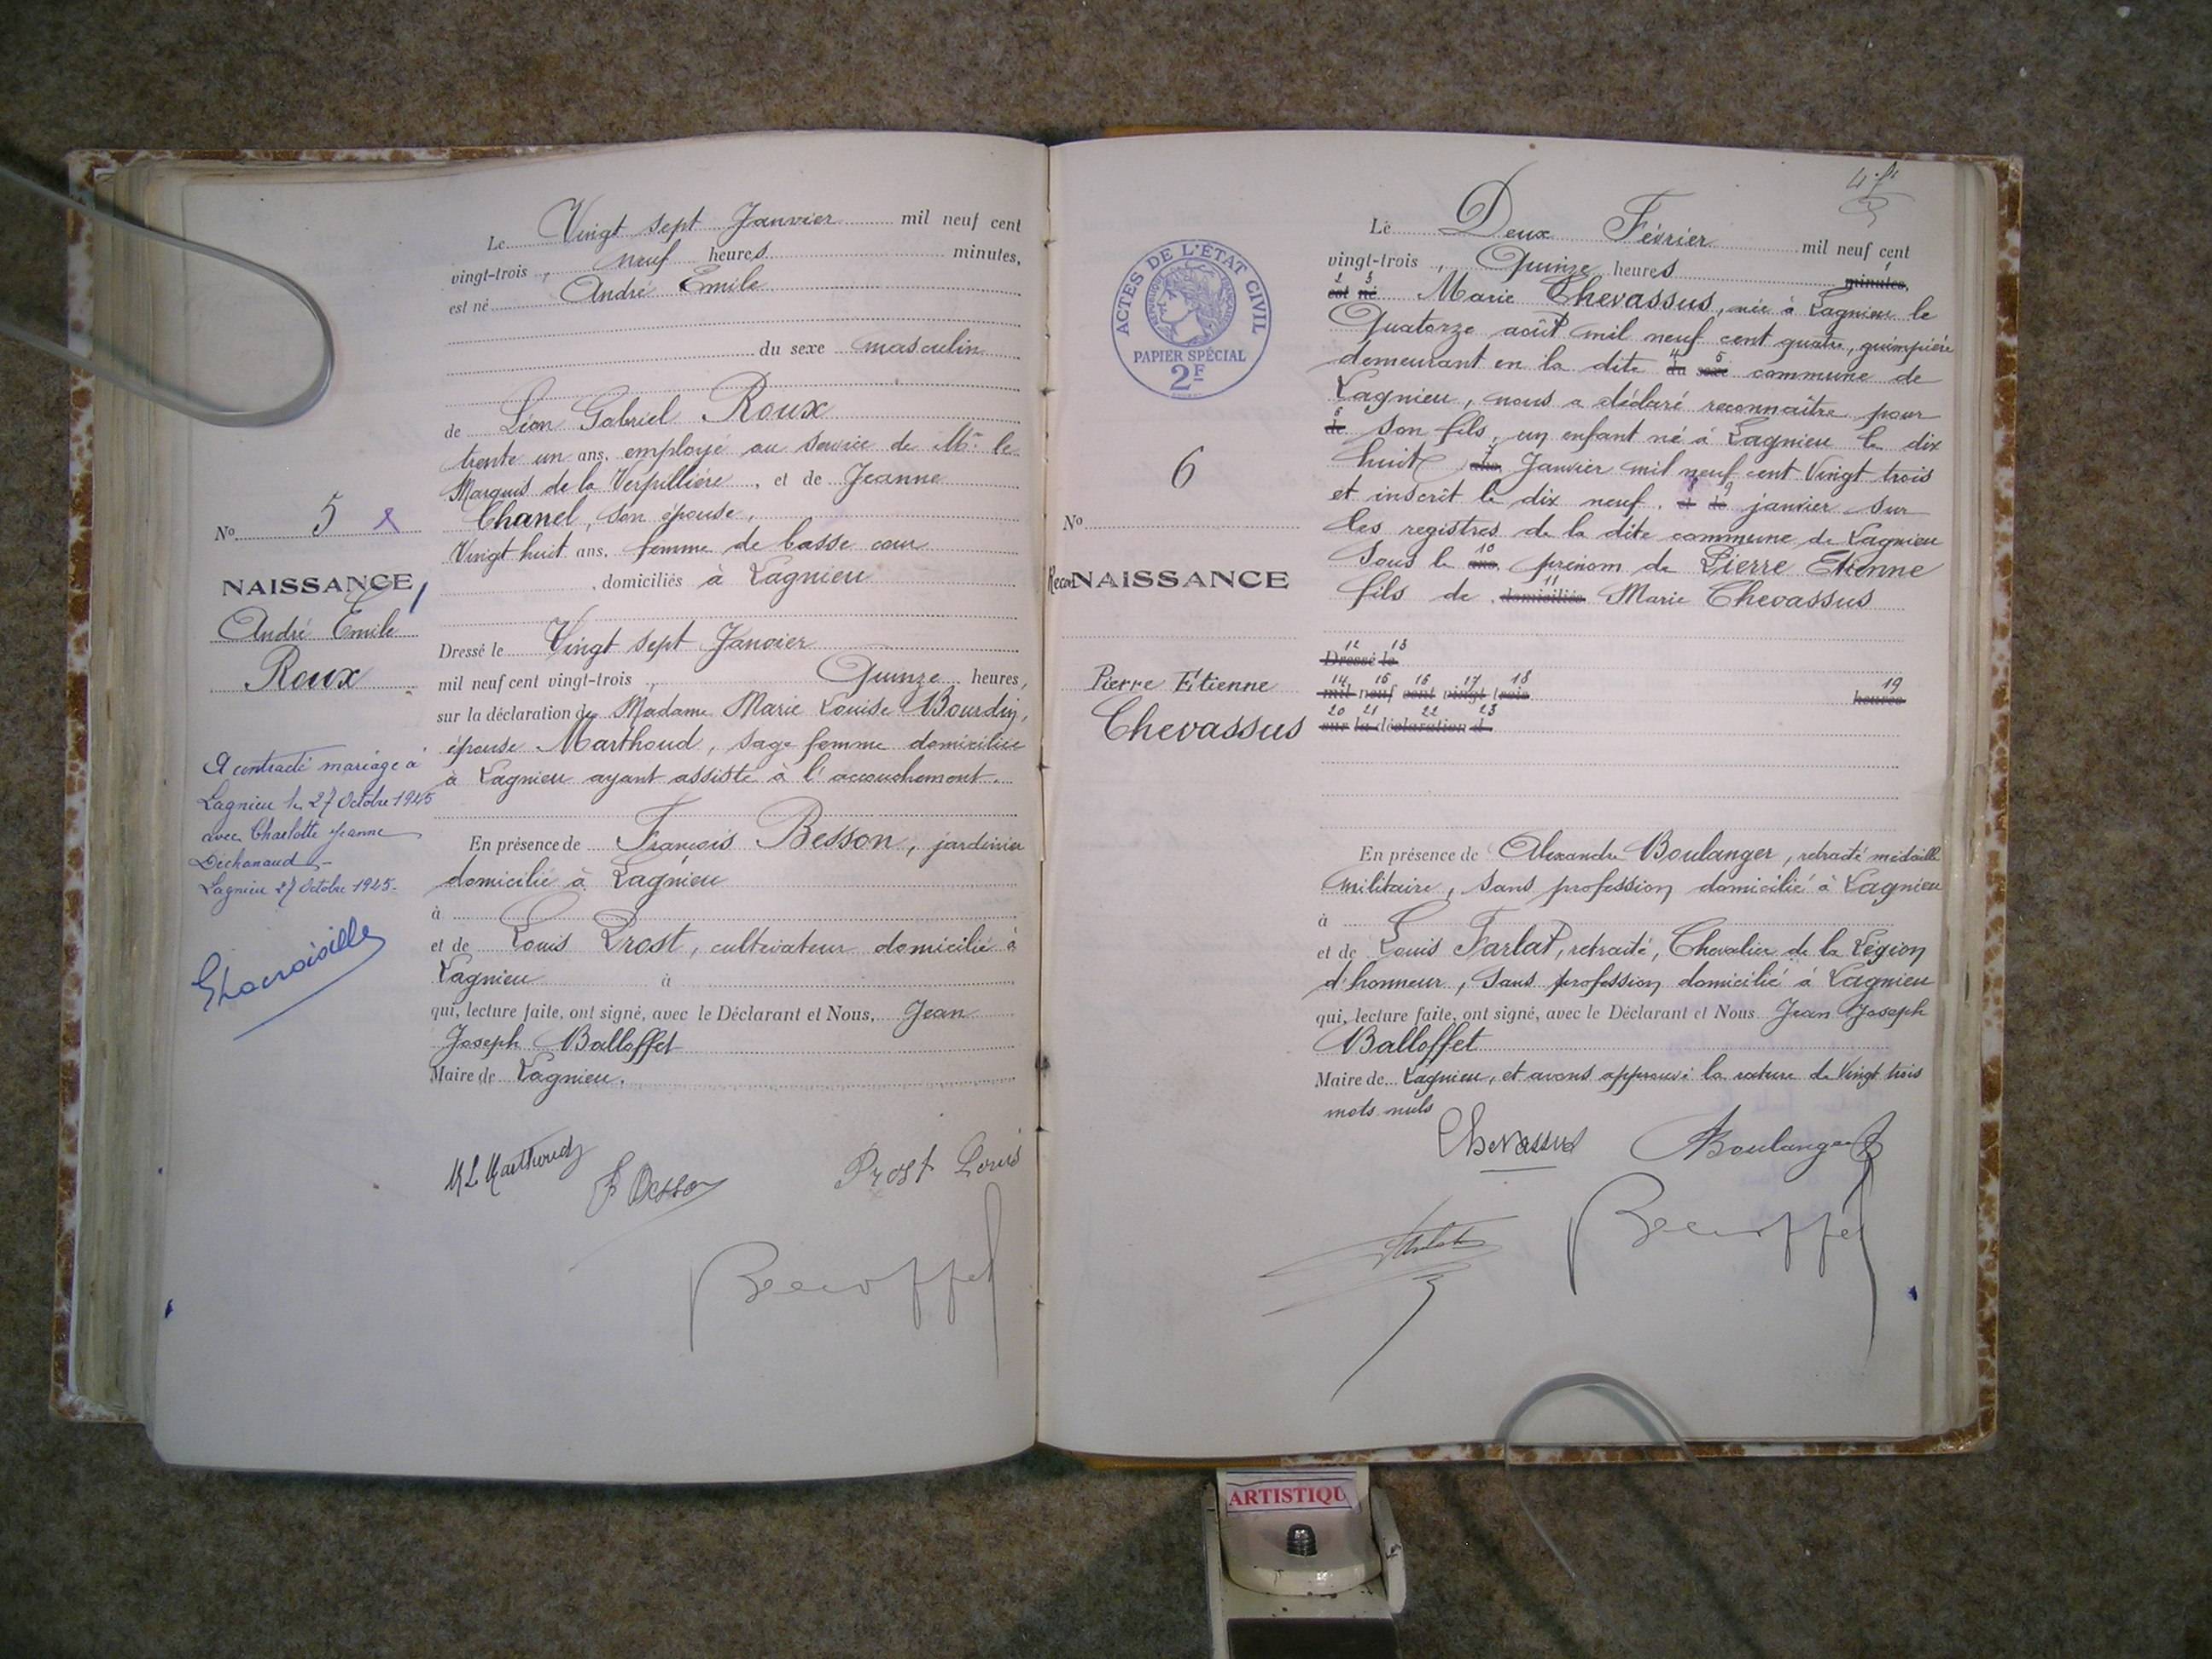 Le Vingt sept Janvier mil neuf cent
vingt-trois, neuf heures minutes,
est né André Emile
du sexe masculin
de Léon Gabriel Roux
trente un ans, employé au service de Mr le
Marquis de la Verpillière, et de Jeanne
Chanel, son épouse,
Vingt huit ans, femme de basse cour
, domiciliés à Lagnieu
No 5
NAISSANCE
André Emile
Roux
Dressé le Vingt sept Janvier
mil neuf cent vingt-trois, Quinze heures,
sur la déclaration de Madame Marie Louise Bourdin,
épouse Marthoud, sage femme domiciliée
à Lagnieu ayant assisté à l'accouchement.
A contracté mariage à
Lagnieu le 27 Octobre 1945
avec Charlotte Jeanne
Dechanaud -
Lagnieu 27 Octobre 1945.
En présence de François Besson, jardinier
domicilié à Lagnieu
à
et de Louis Prost, cultivateur domicilié à
Lagnieu à
qui, lecture faite, ont signé, avec le Déclarant et Nous, Jean
Joseph Balloffet
Maire de Lagnieu.
M L Marthoud
F Besson
Prost Louis
Balloffet
ACTES DE L'ÉTAT CIVIL
RÉPUBLIQUE FRANÇAISE
PAPIER SPÉCIAL
2F
Le Deux Février mil neuf cent
vingt-trois, Quinze heures minutes, 1
2 3
est né Marie Chevassus, née à Lagnieu le
Quatorze août mil neuf cent quatre, guimpière
demeurant en la dite 4 du 5 sexe commune de
Lagnieu, nous a déclaré reconnaître pour
6 de son fils, un enfant né à Lagnieu le dix
huit 7 ans, Janvier mil neuf cent Vingt trois
et inscrit le dix neuf, 8 et 9 de janvier sur
les registres de la dite commune de Lagnieu
sous le 10 ans, prénom de Pierre Etienne
fils de 11 domiciliés Marie Chevassus
6
No
ReconNAISSANCE
Pierre Etienne
Chevassus
12 13
Dressé le
14 15 16 17 18 19
mil neuf cent vingt-trois heures
20 21 22 23
sur la déclaration d
En présence de Alexandre Boulanger, retraité médaillé
militaire, sans profession domicilié à Lagnieu
à
et de Louis Farlat, retraité, Chevalier de la Légion
d'honneur, sans profession domicilié à Lagnieu
qui, lecture faite, ont signé, avec le Déclarant et Nous Jean Joseph
Balloffet
Maire de Lagnieu, et avons approuvé la rature de Vingt trois
mots nuls
Chevassus
Boulanger
Farlat
Balloffet
ARTISTIQU